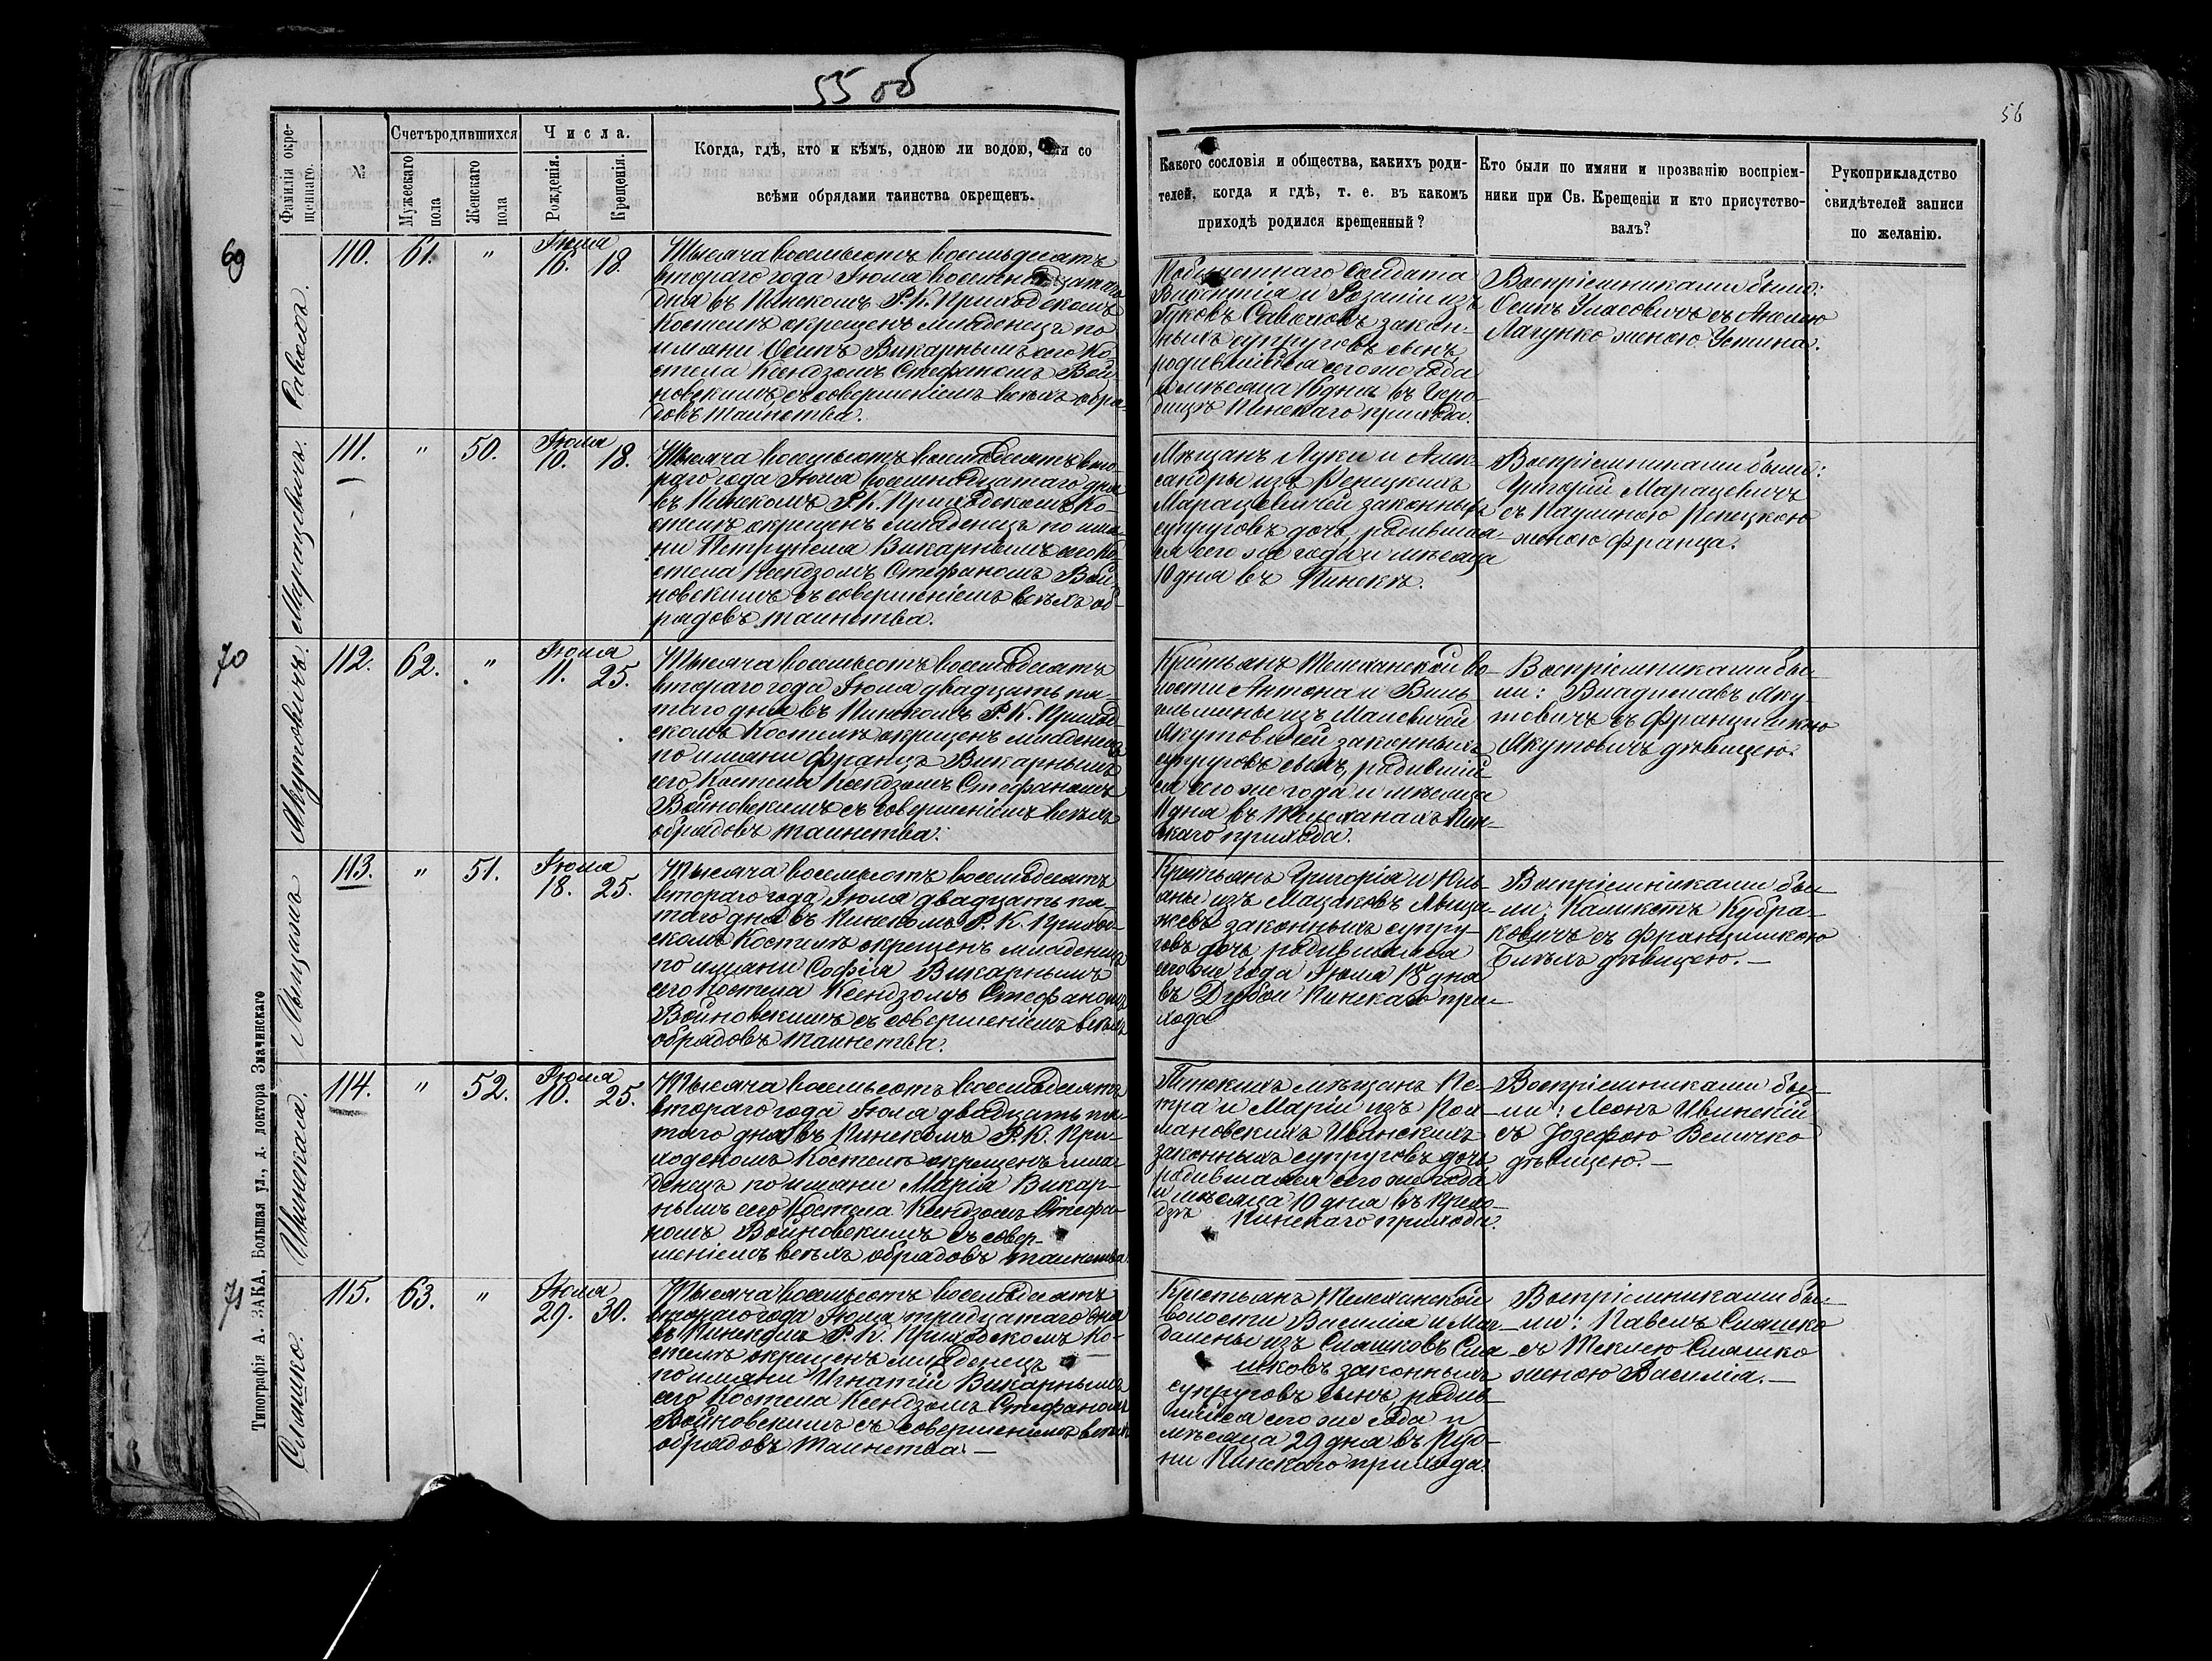 55 об
56
Фамилія окре-
щеннаго.
№
Счетъ родившихся
Мужескаго
пола
Женскаго
пола
Числа.
Рожденія.
Крещенія.
Когда, гдѣ, кто и кѣмъ, одною ли водою, или со
всѣми обрядами таинства окрещенъ.
Какого сословія и общества, какихъ роди-
телей, когда и гдѣ, т. е. въ какомъ
приходѣ родился крещенный?
Кто были по имяни и прозванію воспріем-
ники при Св. Крещеніи и кто присутство-
валъ?
Рукоприкладство
свидѣтелей записи
по желанію.
69
110.
61.
"
Іюля
16. 18.
Тысяча восемьсотъ восемьдесятъ
втораго года Іюля восемнадцатаго
дня въ Пинскомъ Р. К. Приходскомъ
Костелѣ окрещенъ младенецъ по
имяни Осипъ Викарнымъ сего Ко-
стела Ксендзомъ Стефаномъ Вой-
новскимъ съ совершеніемъ всѣхъ обря-
довъ таинства.
солдата
Викентія и Розаліи изъ
закон-
ныхъ супруговъ сынъ
родившійся сего же года
и мѣсяца 16 дня въ
Пинскаго прихода.
Воспріемниками были:
Осипъ съ
женою Устина.
Марацевичъ.
111.
"
50.
Іюля
10. 18.
Тысяча восемьсотъ восемьдесятъ вто-
раго года Іюля восемнадцатаго дня
въ Пинскомъ Р. К. Приходскомъ Ко-
стелѣ окрещенъ младенецъ по имя-
ни Петрунеля Викарнымъ сего Ко-
стела Ксендзомъ Стефаномъ Вой-
новскимъ съ совершеніемъ всѣхъ об-
рядовъ таинства.
Мѣщанъ Луки и Алек-
сандры изъ Репецкихъ
Марацевичей законныхъ
супруговъ дочь, родившая-
ся сего же года и мѣсяца
10 дня въ Пинскѣ.
Воспріемниками были:
Григорій Марацевичъ
съ Паулиною Репецкою
женою Франца.
70
Якутовичъ.
112.
62.
"
Іюля
11. 25.
Тысяча восемьсотъ восемьдесятъ
втораго года Іюля двадцать пя-
таго дня въ Пинскомъ Р. К. Приход-
скомъ Костелѣ окрещенъ младенецъ
по имяни Францъ Викарнымъ
сего Костела Ксендзомъ Стефаномъ
Войновскимъ съ совершеніемъ всѣхъ
обрядовъ таинства.
Крестьянъ Телеханской во-
лости Антона и Виль-
гельмины изъ Малевичей
Якутовичей законныхъ
супруговъ сынъ, родившій-
ся сего же года и мѣсяца
11 дня въ Телеханахъ Пин-
скаго прихода.
Воспріемниками бы-
ли: Владиславъ Яку-
товичъ съ Францишкою
Якутовичъ дѣвицею.
113.
"
51.
Іюля
18. 25.
Тысяча восемьсотъ восемьдесятъ
втораго года Іюля двадцать пя-
таго дня въ Пинскомъ Р. К. Приход-
скомъ Костелѣ окрещенъ младенецъ
по имяни Софія Викарнымъ
сего Костела Ксендзомъ Стефаномъ
Войновскимъ съ совершеніемъ всѣхъ
обрядовъ таинства.
Крестьянъ Григорія и Юль-
яны изъ Мацаковъ
законныхъ супру-
говъ дочь, родившаяся
сего же года Іюля 18 дня
въ Дубои Пинскаго при-
хода
Воспріемниками бы-
ли: Каликстъ Кубра-
ковичъ съ Францишкою
дѣвицею. —
Ивинская.
114.
"
52.
Іюля
10. 25.
Тысяча восемьсотъ восемьдесятъ
втораго года Іюля двадцать пя-
таго дня въ Пинскомъ Р. К. При-
ходскомъ Костелѣ окрещенъ мла-
денецъ по имяни Марія Викар-
нымъ сего Костела Ксендзомъ Стефа-
номъ Войновскимъ съ совер-
шеніемъ всѣхъ обрядовъ таинства.
Пинскихъ мѣщанъ Пе-
тра и Маріи изъ Рох-
мановскихъ Ивинскихъ
законныхъ супруговъ дочь
родившаяся сего же года
и мѣсяца 10 дня въ
Пинскаго прихода.
Воспріемниками бы-
ли: Леонъ Ивинскій
съ Іозефою Величко
дѣвицею. —
71
Слашко.
115.
63.
"
Іюля
29. 30.
Тысяча восемьсотъ восемьдесятъ
втораго года Іюля тридцатаго дня
въ Пинскомъ Р. К. Приходскомъ Ко-
стелѣ окрещенъ младенецъ
по имяни Игнатій Викарнымъ
сего Костела Ксендзомъ Стефаномъ
Войновскимъ съ совершеніемъ всѣхъ
обрядовъ таинства. —
Крестьянъ Телеханской
волости Василія и Маг-
далены изъ Слашковъ Сла-
шковъ законныхъ
супруговъ сынъ, родив-
шійся сего же года и
мѣсяца 29 дня въ Руд-
ни Пинскаго прихода.
Воспріемниками бы-
ли: Павелъ Слашко
съ Теклею Слашко
женою Василія. —
Типографія А. ЗАКА, Большая ул., д. доктора Змачинскаго